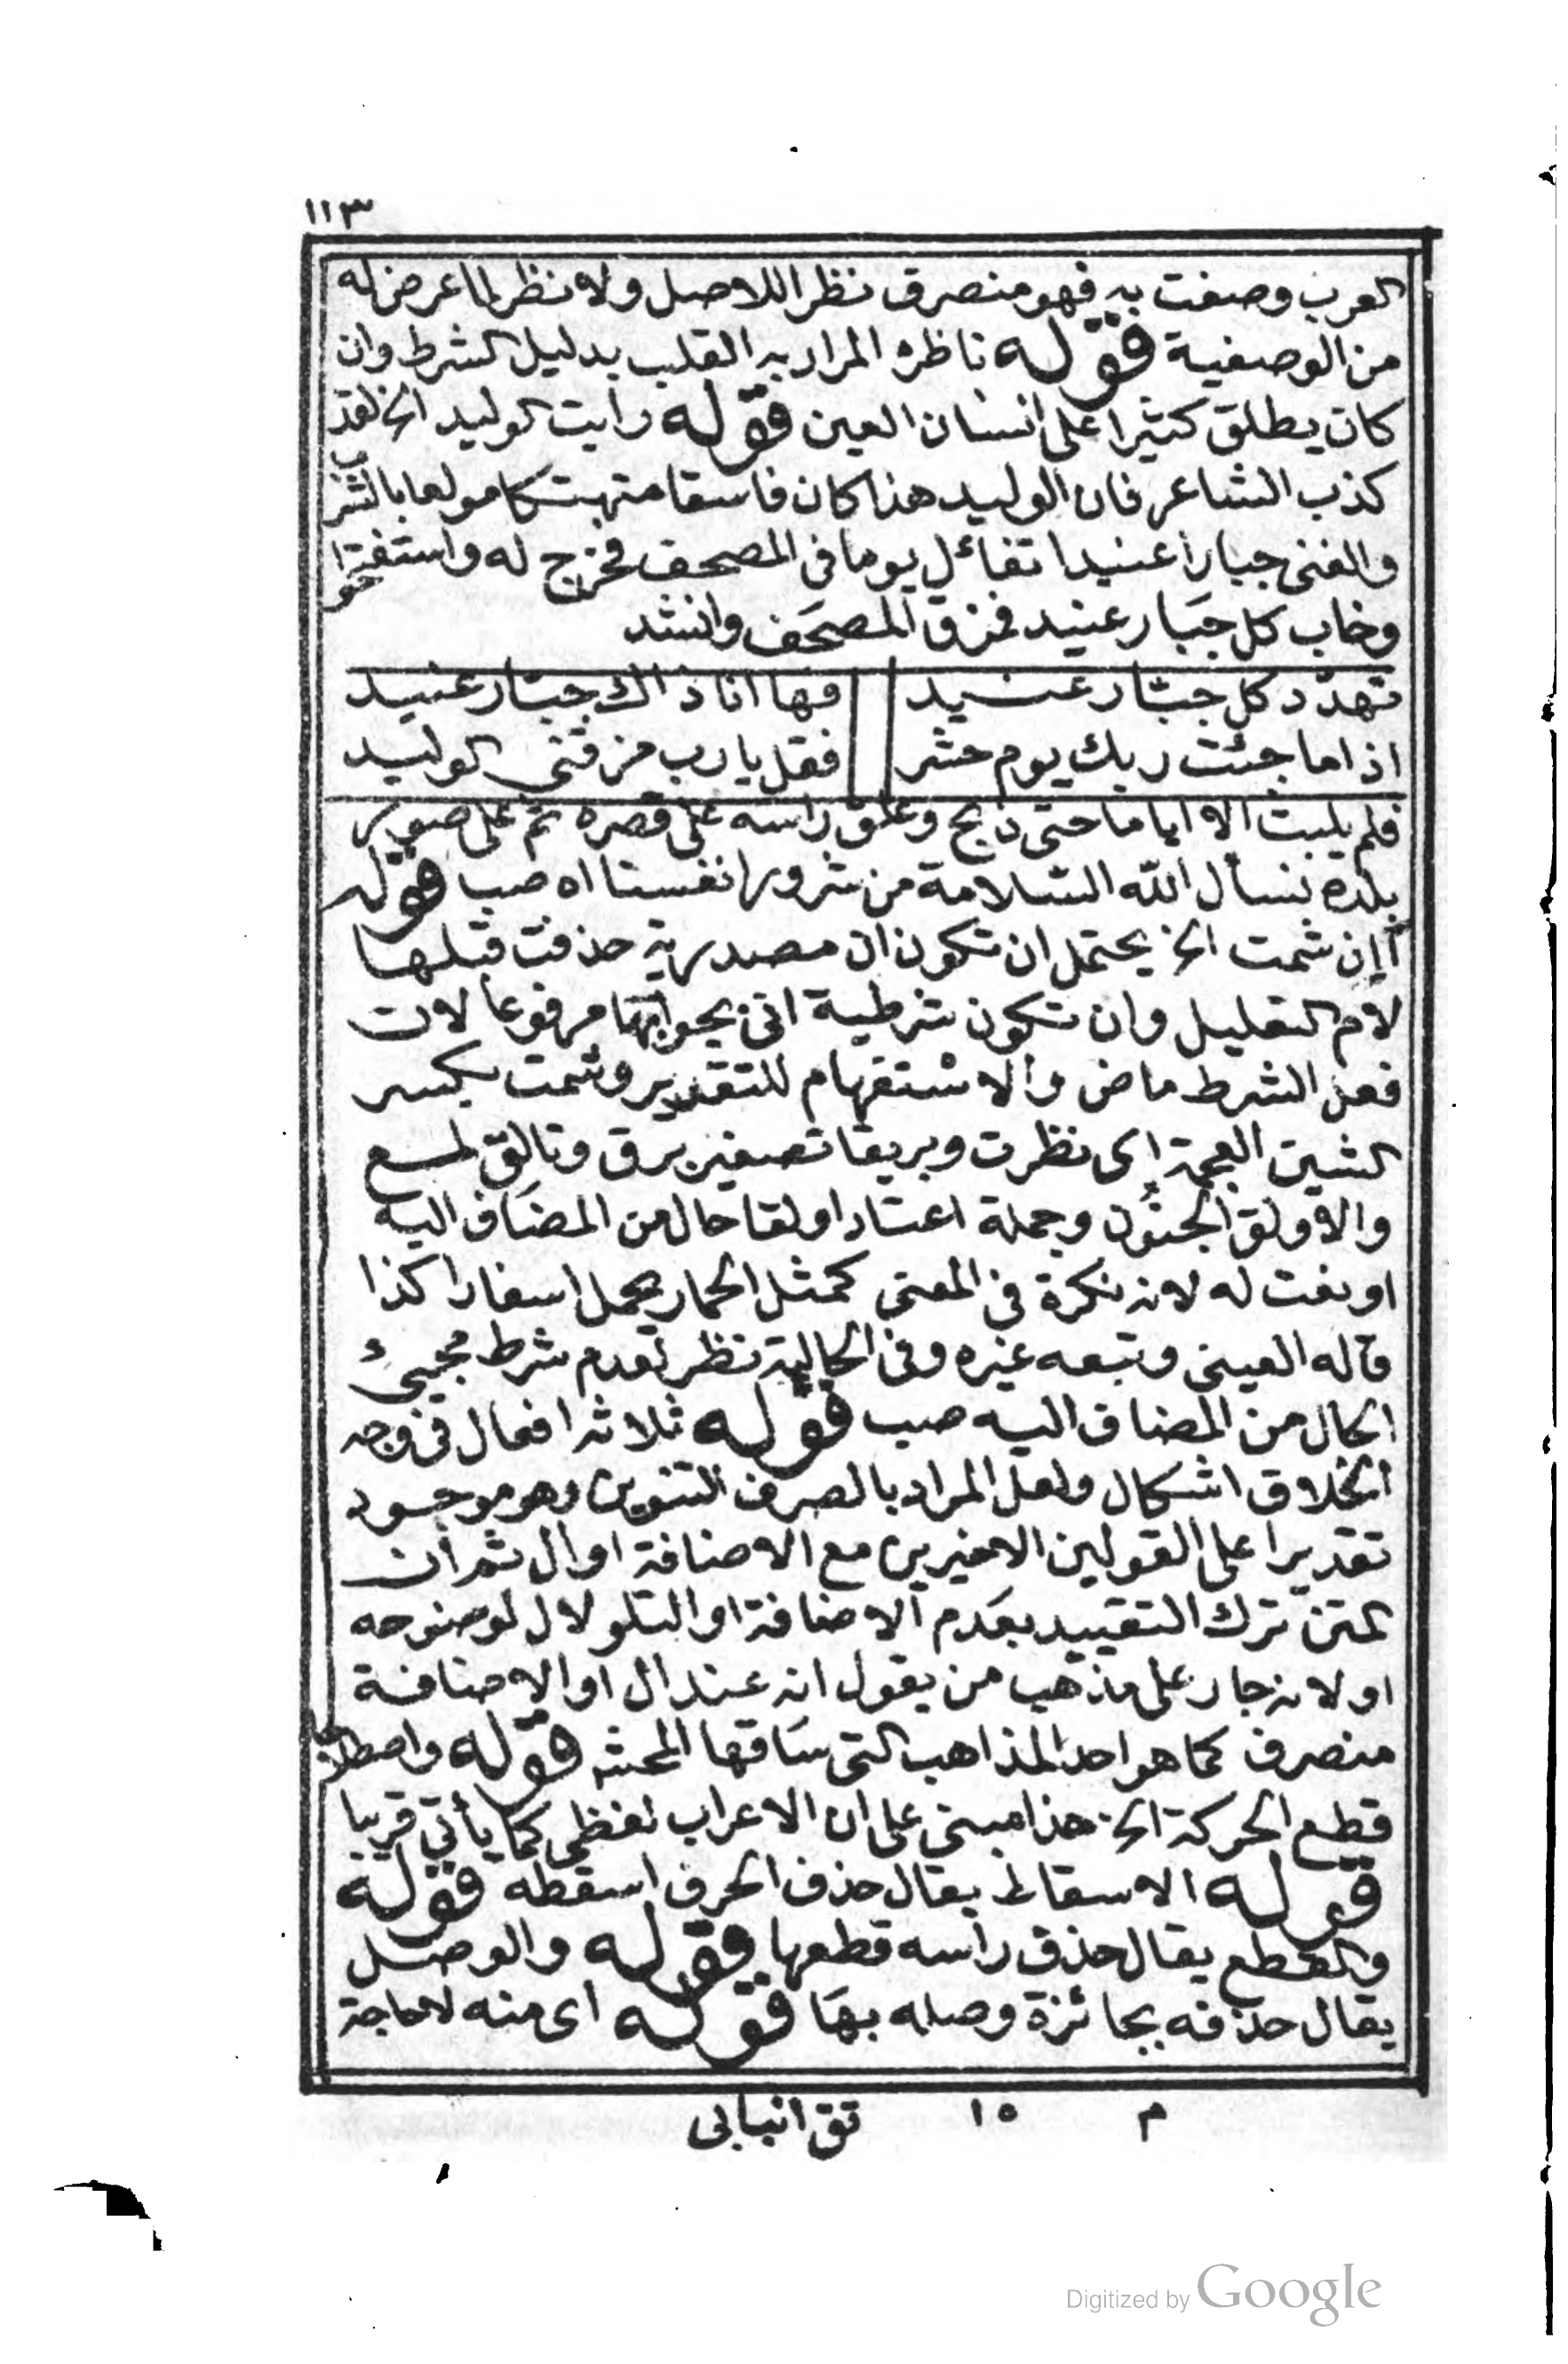 ١١٣
العرب وصفت به فهو منصرف نظرا للاصل ولا نظر لما عرض له
من الوصفية قوله ناظره المراد به القلب بدليل الشرط وان
كان يطلق كثيرا على انسان العين قوله رايت الوليد الخ لقد
كذب الشاعر فان الوليد هذا كان فاسقا متهتكا مولعا بالشرب
والغنى جبارا عنيدا تفائل يوما فى المصحف فخرج له واستفتحوا
وخاب كل جبار عنيد فمزق المصحف وانشد
تهدد كل جبار عنيد فها انا ذاك جبار عنيد
اذا ما جئت ربك يوم حشر فقل يا رب مزقنى الوليد
فلم يلبث الا اياما حتى ذبح وعلق راسه على قصره ثم على صور
بلده نسأل الله السلامة من شرور انفسنا اه صب قوله
أإن شمت الخ يحتمل ان تكون ان مصدرية حذفت قبلها
لام التعليل وان تكون شرطية اتى بجوابها مرفوعا لان
فعل الشرط ماض والاستفهام للتقدير وشمت بكسر
الشين المعجمة اى نظرت وبريقا تصغير برق وتالق لمع
والاولق الجنون وجملة اعتاد اولقا حال من المضاف اليه
او نعت له لانه نكرة فى المعنى كمثل الحمار يحمل اسفارا كذا
قاله العينى وتبعه غيره وفى الحالية نظر لعدم شرط مجيئ
الحال من المضاف اليه صب قوله ثلاثه افعال فى وجه
الخلاف اشكال ولعل المراد بالصرف التنوين وهو موجود
تقديرا على القولين الاخيرين مع الاضافة او ال ثم ان
المتن ترك التقييد بعدم الاضافة او التلو لال لوضوحه
او لانه جار على مذهب من يقول انه عند ال او الاضافة
منصرف كما هو احد المذاهب التى ساقها المحشه قوله واصطلاحا
قطع الحركة الخ هذا مبنى على ان الاعراب لفظى كما يأتى قريبا
قوله الاسقاط يقال حذف الحرف اسقطه قوله
والقطع يقال حذف راسه قطعها قوله والوصل
يقال حذفه بجائزة وصله بها قوله اى منه لاحاجة
م ١٥ تق انبابى
Digitized by Google